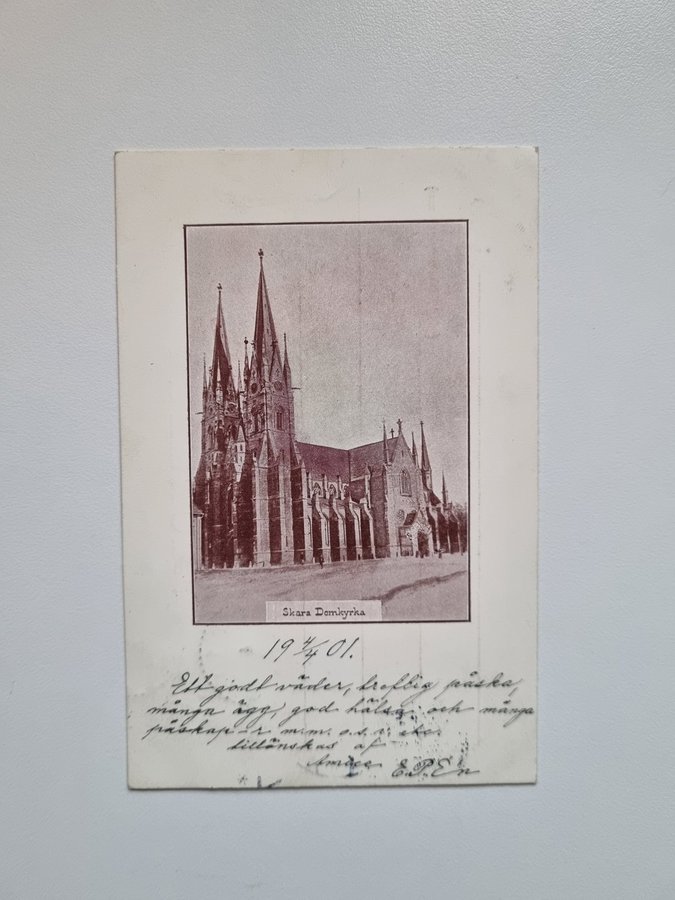 Skara Domkyrka
19 4/4 01.
Ett godt väder, treflig påska,
många ägg, god hälsa och många
påskap-r m.m. o.s.v. etc.
tillönskas af
E.P.En